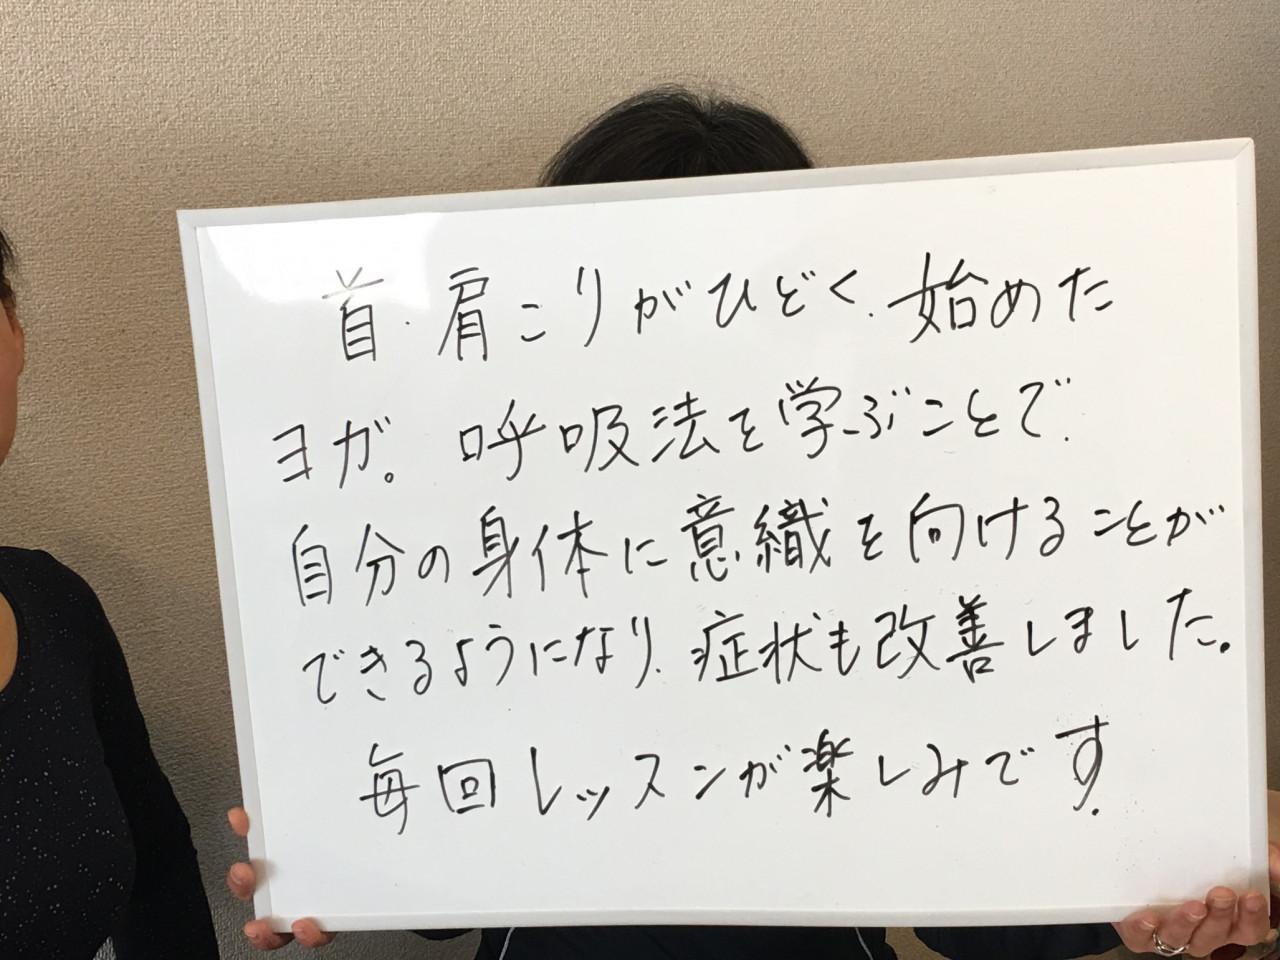 首・肩こりがひどく、始めた
ヨガ。呼吸法を学ぶことで、
自分の身体に意織を向けることが
できるようになり、症状も改善しました。
毎回レッスンが楽しみです.